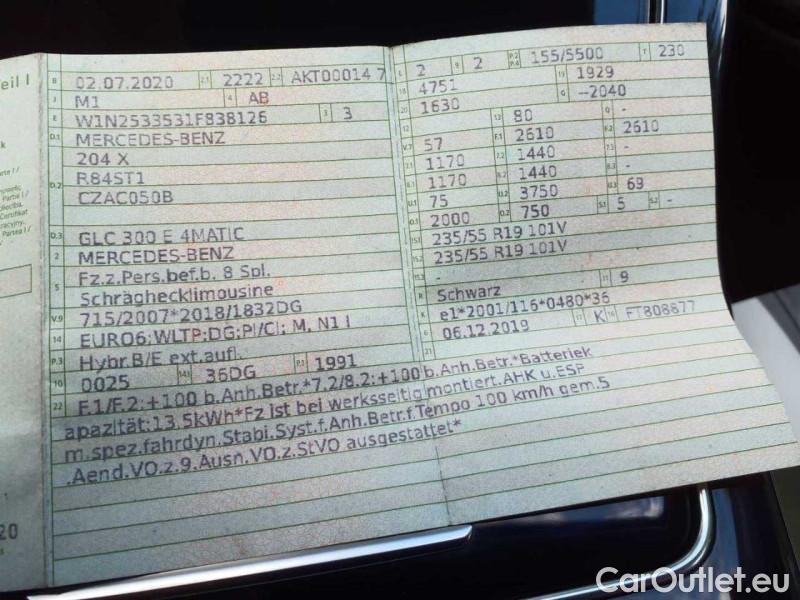 Teil I
B 02.07.2020 2.1 2222 2.2 AKT00014 7
J M1 4 AB
E W1N2533531F838126 3 3
D.1 MERCEDES-BENZ
204 X
D.2 R84ST1
CZAC050B
D.3 GLC 300 E 4MATIC
2 MERCEDES-BENZ
Fz.z.Pers.bef.b. 8 Spl.
5 Schräghecklimousine
V.9 715/2007*2018/1832DG
14 EURO6;WLTP;DG;PI/CI; M, N1 I
P.3 Hybr.B/E ext.aufl.
10 0025 14.1 36DG P.1 1991
22 F.1/F.2:+100 b.Anh.Betr.*7.2/8.2:+100 b.Anh.Betr.*Batteriek
apazität:13,5kWh*Fz ist bei werksseitig montiert.AHK u.ESP
m.spez.fahrdyn.Stabi.Syst.f.Anh.Betr.f.Tempo 100 km/h gem.5
.Aend.VO.z.9.Ausn.VO.z.StVO ausgestattet*
L 2 9 2 P.2 P.4 155/5500 T 230
18 4751 19 1929
20 1630 G --2040
12 80 Q -
V.7 57 F.1 2610 F.2 2610
7.1 1170 7.2 1440 7.3 -
8.1 1170 8.2 1440 8.3 -
U.1 75 U.2 3750 U.3 69
O.1 2000 O.2 750 S.1 5 S.2 -
15.1 235/55 R19 101V
15.2 235/55 R19 101V
15.3 -
R Schwarz 11 9
K e1*2001/116*0480*36
6 06.12.2019 17 K 16 FT808877
21
20
CarOutlet.eu